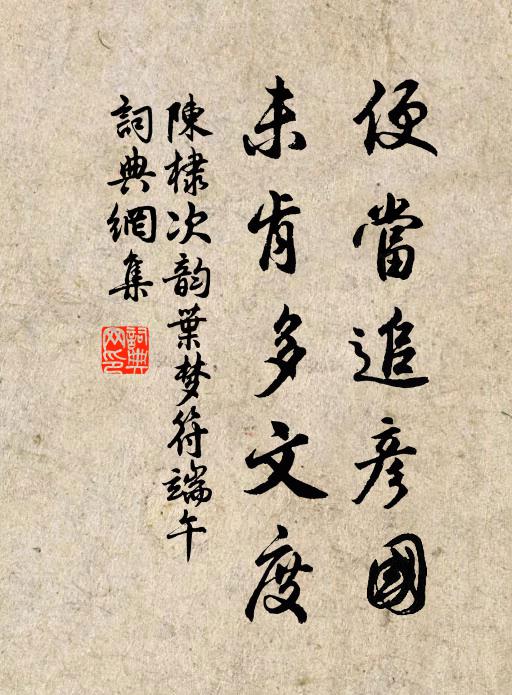 便當追彥國
未肯多文度
陳棣次韵葉梦符端午
詞典網集
詞典
网印